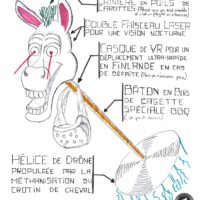 CRINIÈRE EN POILS DE
CAROTTES
DOUBLE FAISCEAU LASER
POUR UNE VISION NOCTURNE
CASQUE DE VR POUR UN
DÉPLACEMENT ULTRA-RAPIDE
EN FINLANDE EN CAS
DE DÉFAITE
BÂTON EN BOIS
DE CAGETTE
SPÉCIALE BBQ
HÉLICE DE DRÔNE
PROPULSÉE PAR LA
MÉTHANISATION DU
CROTIN DE CHEVAL